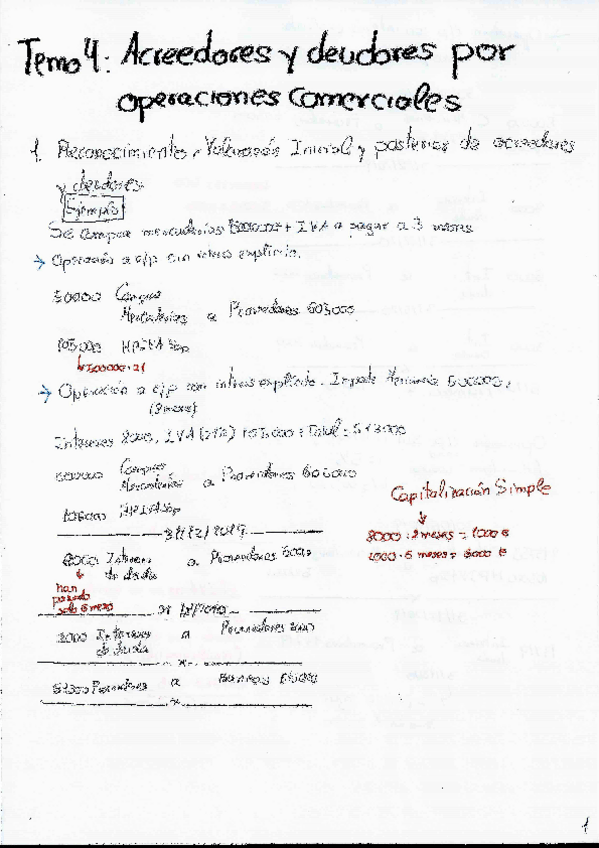 Tema 4: Acreedores y deudores por
operaciones comerciales
1. Reconocimiento, Valoración Inicial y posterior de acreedores
y deudores
Ejemplo
Se compran mercaderías 500000 + IVA a pagar a 3 meses
→ Operación a c/p sin interés explícito.
Compras
Mercaderías a Proveedores 605000
105000 HP IVA Sop
↳ 500000·21
→ Operación a c/p con interés explícito. Importe
Intereses 8000, IVA (21%) 105000: Total: 613000
Compras
Mercaderías a Proveedores 605000
105000 HP IVA Sop
31/12/2019
6000 Intereses
de deuda a Proveedores 6000
han
pasado
solo 6 meses
2000 Intereses
de deuda a Proveedores 2000
Proveedores a Bancos
Capitalización Simple
↓
8000 : 8 meses = 1000 €
1000 · 6 meses = 6000 €
1